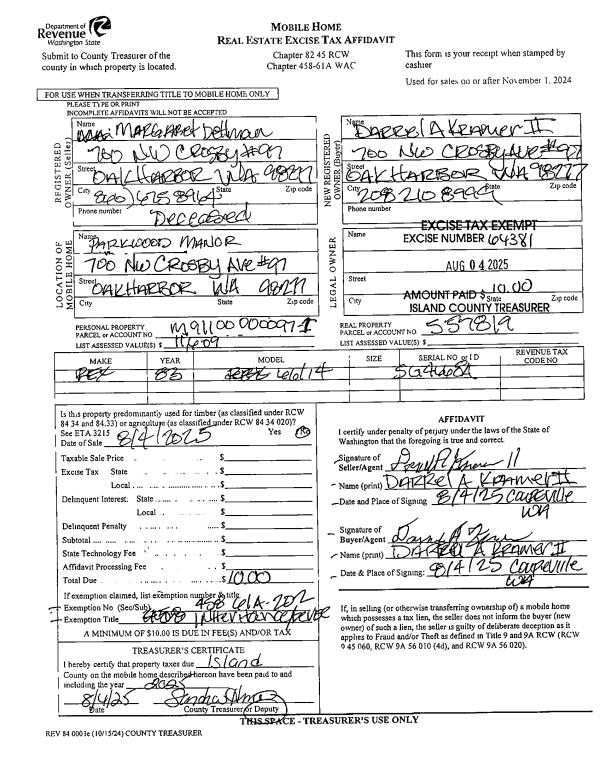 Department of
Revenue
Washington State
Submit to County Treasurer of the
county in which property is located.
MOBILE HOME
REAL ESTATE EXCISE TAX AFFIDAVIT
Chapter 82 45 RCW
Chapter 458-61A WAC
This form is your receipt when stamped by
cashier
Used for sales on or after November 1, 2024
FOR USE WHEN TRANSFERRING TITLE TO MOBILE HOME ONLY
PLEASE TYPE OR PRINT
INCOMPLETE AFFIDAVITS WILL NOT BE ACCEPTED
REGISTERED
OWNER (Seller)
Name
MARGARET Dollman
700 NW CROSBY #97
Street
OAK HARBOR WA 98277
City State Zip code
Phone number
Deceased
NEW REGISTERED
OWNER (Buyer)
Name
DARREL A KRAMER II
700 NW CROSBY AVE #97
Street
OAK HARBOR WA 98277
City State Zip code
208 210 8994
Phone number
LOCATION OF
MOBILE HOME
Name
PARKWOOD MANOR
700 NW CROSBY AVE #97
Street
OAK HARBOR WA 98277
City State Zip code
LEGAL OWNER
EXCISE TAX EXEMPT
EXCISE NUMBER 64381
Name
AUG 04 2025
Street
AMOUNT PAID $ 10.00
ISLAND COUNTY TREASURER
City State Zip code
PERSONAL PROPERTY
PARCEL or ACCOUNT NO.
LIST ASSESSED VALUE(S) $ 11609
REAL PROPERTY
PARCEL or ACCOUNT NO. 557819
MAKE YEAR MODEL SIZE SERIAL NO or ID REVENUE TAX CODE NO
REX 83 66/14
Is this property predominantly used for timber (as classified under RCW
84 34 and 84.33) or agriculture (as classified under RCW 84 34 020)?
See ETA 3215 Yes No
Date of Sale 8/4/2025
Taxable Sale Price $
Excise Tax State $
Local $
Delinquent Interest. State $
Local $
Delinquent Penalty $
Subtotal $
State Technology Fee $
Affidavit Processing Fee $
Total Due $ 10.00
If exemption claimed, list exemption number & title.
Exemption No (Sec/Sub) 458 61A-202
Exemption Title Inheritance
A MINIMUM OF $10.00 IS DUE IN FEE(S) AND/OR TAX
AFFIDAVIT
I certify under penalty of perjury under the laws of the State of
Washington that the foregoing is true and correct.
Signature of
Seller/Agent
Name (print) DARREL A KRAMER II
Date and Place of Signing 8/4/25 Coupeville
WA
Signature of
Buyer/Agent
Name (print) DARREL A KRAMER II
Date & Place of Signing: 8/4/25 Coupeville
WA
If, in selling (or otherwise transferring ownership of) a mobile home
which possesses a tax lien, the seller does not inform the buyer (new
owner) of such a lien, the seller is guilty of deliberate deception as it
applies to Fraud and/or Theft as defined in Title 9 and 9A RCW (RCW
9 45 060, RCW 9A 56 010 (4d), and RCW 9A 56 020).
TREASURER'S CERTIFICATE
I hereby certify that property taxes due Island
County on the mobile home described hereon have been paid to and
including the year 2025
8/4/25
Date County Treasurer or Deputy
THIS SPACE - TREASURER'S USE ONLY
REV 84 0003e (10/15/24) COUNTY TREASURER